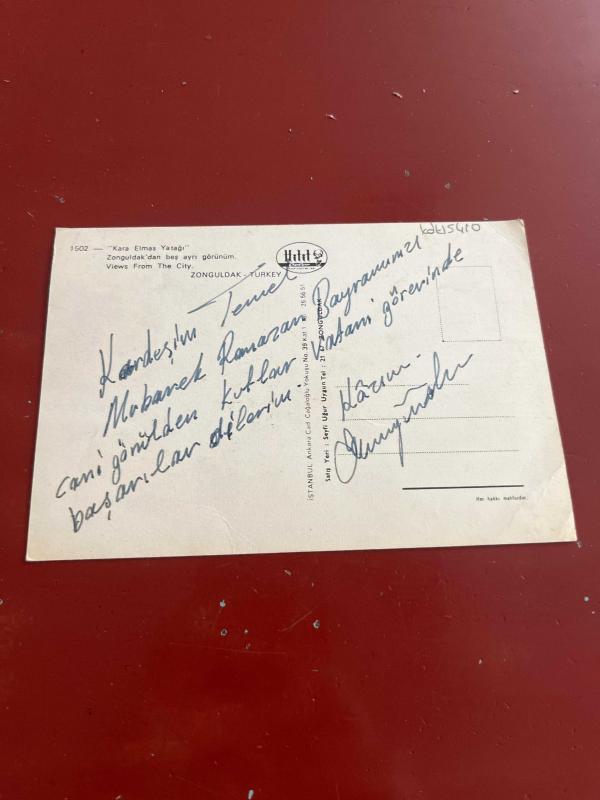 1502 — "Kara Elmas Yatağı"
Zonguldak'dan beş ayrı görünüm.
Views From The City.
ZONGULDAK - TURKEY
Kardeşim Temel
Mubarek Ramazan Bayramınızı
cani gönülden kutlar vatani görevinde
başarılar dilerim.
Kâzım
İSTANBUL: Ankara Cad. Cağaloğlu Yokuşu No. 39 Kat 1 26 56 51
Satış Yeri : Seyfi Uğur Uygun Tel : 21 ZONGULDAK
Her hakkı mahfuzdur.